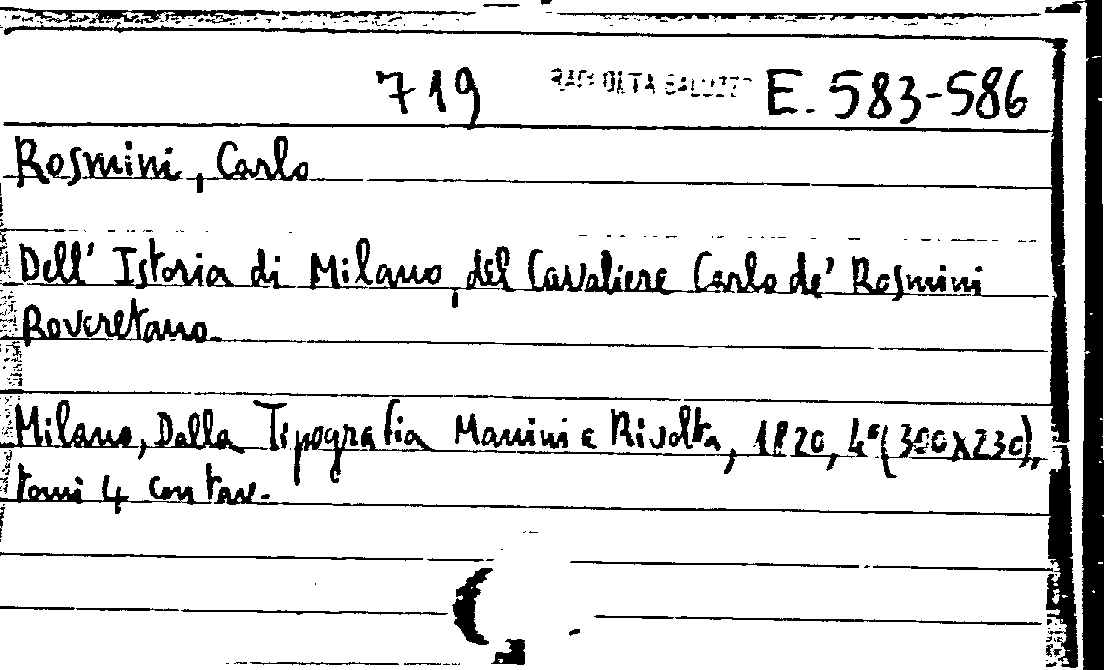 719 RACCOLTA SALUZZO E. 583-586
Rosmini, Carlo
Dell' Istoria di Milano, del Cavaliere Carlo de' Rosmini
Roveretano.
Milano, Dalla Tipografia Manini e Rivolta, 1820, 4°(300X230),
tomi 4 con tav.